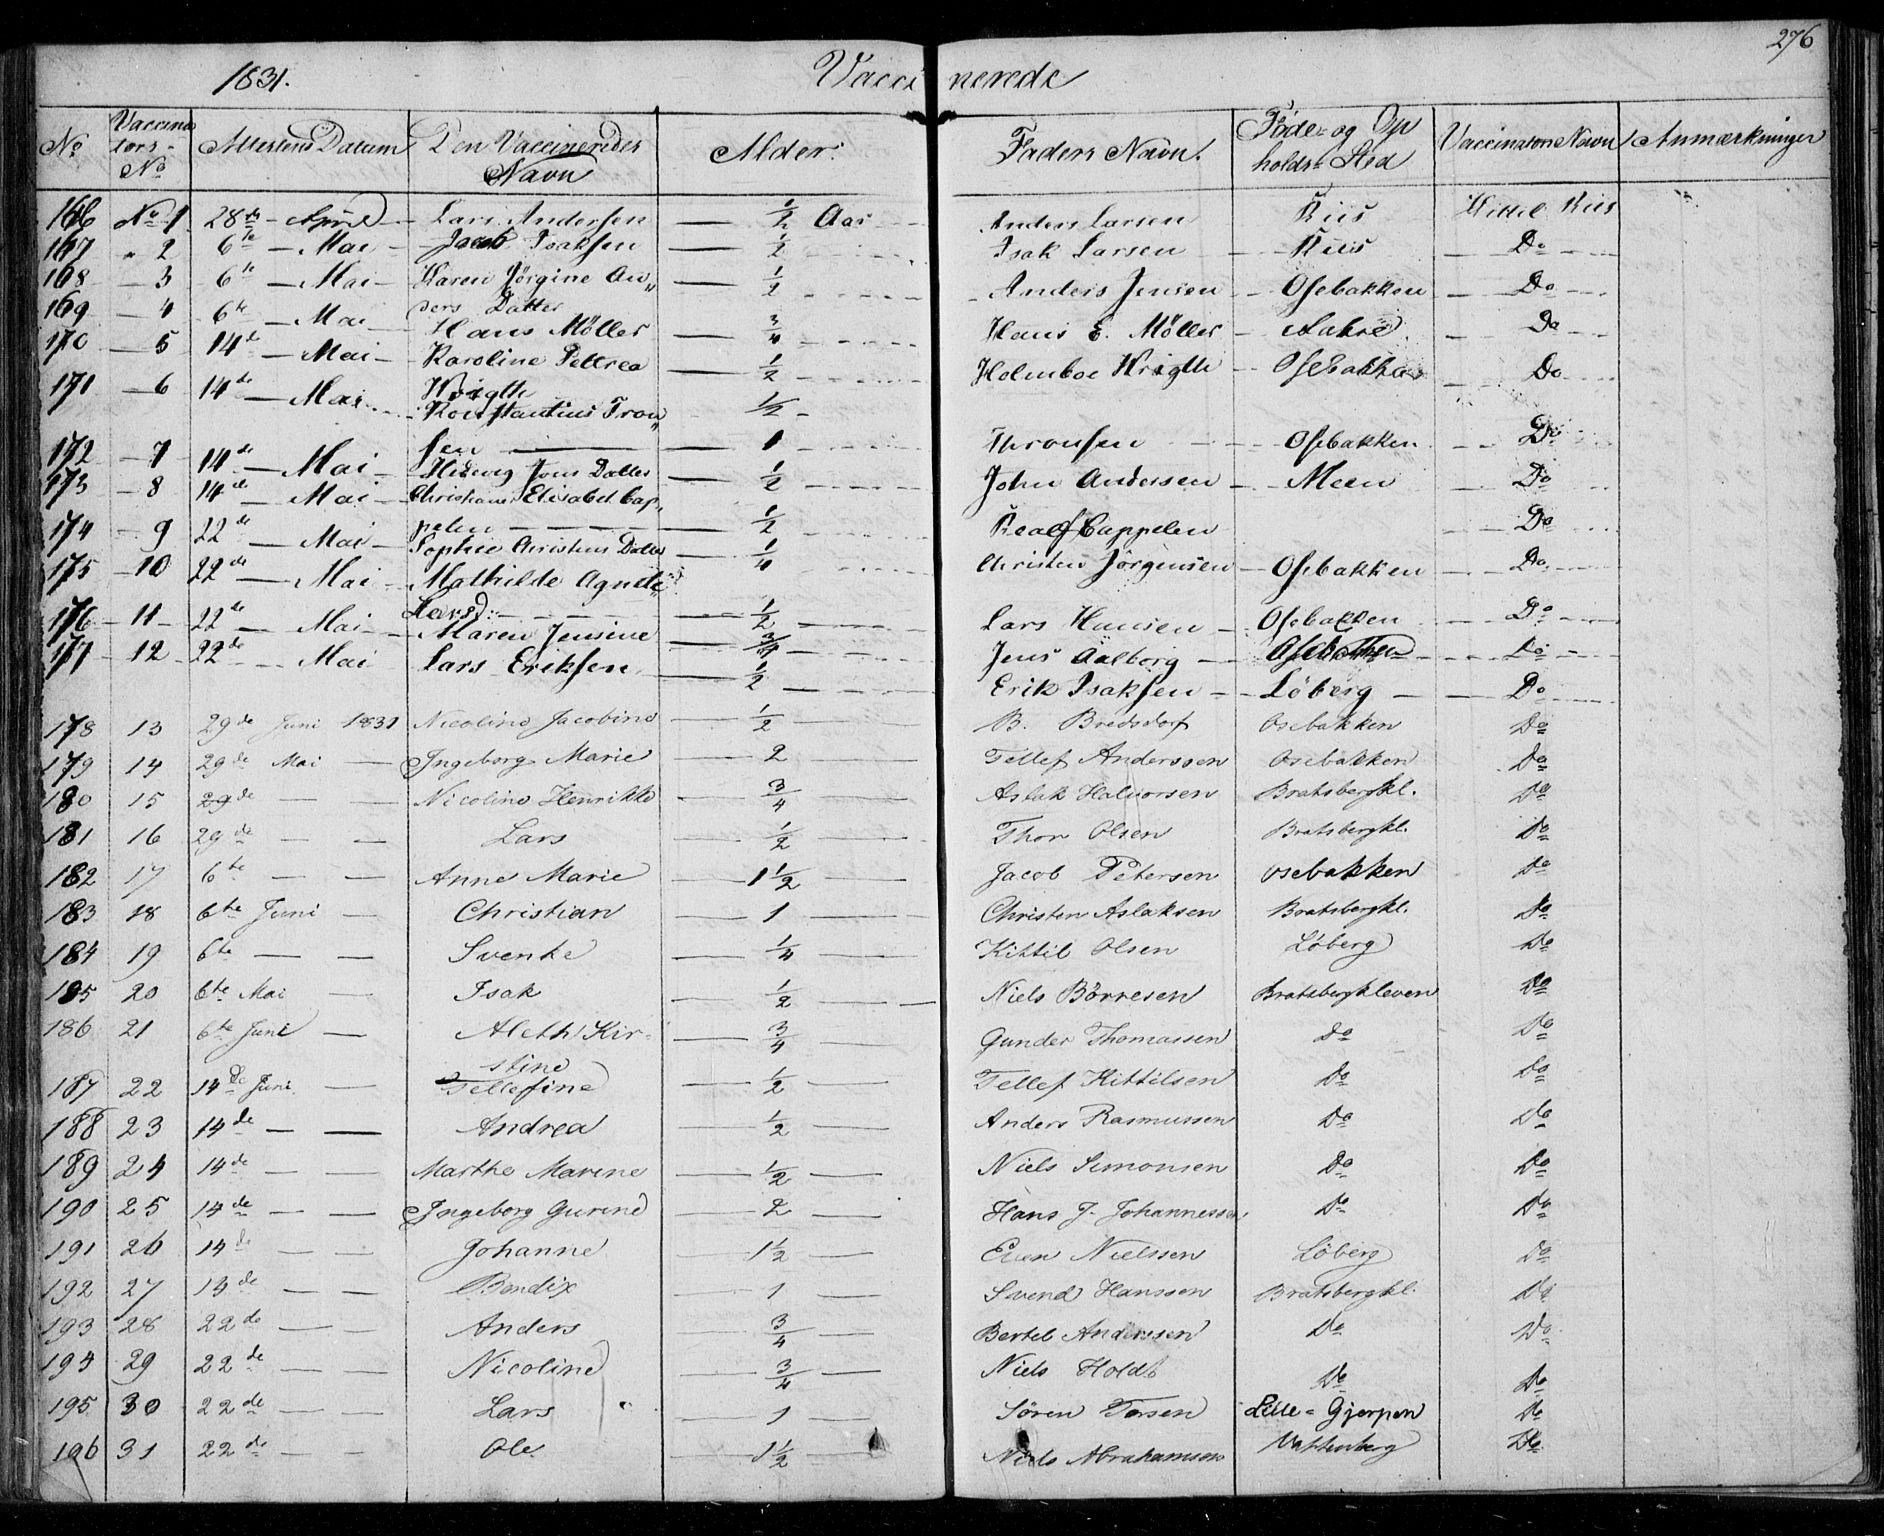 276
1831. Vaccinerede
No Vaccinators No Attestens Datum Den Vaccineredes Navn Alder. Faders Navn. Føde- og Opholds-Sted Vaccinators Navn Anmærkninger
166 No 1 28de April Lars Andersen 1/2 Aar Anders Larsen Riis Kittil Riis
167 " 2 6te Mai Jacob Isaksen 1/2 Isak Larsen Riis Do
168 3 6te Mai Karen Jørgine An„ 1/2 Anders Jensen Osebakken Do
169 4 6te Mai ders Datter
Hans Møller 3/4 Hans E. Møller Do
170 5 14de Mai Karoline Pettrea 1/2 Holmboe Wrigth Osebakken Do
171 6 14de Mai Wrigth
Konstantius Tron„ 1/2
172 7 14de Mai sen 1 Thronsen Osebakken Do
Hedevig Jons Datter 1/2 John Andersen Meen Do
173 8 14de Mai Christiane Elisabet Cap„
174 9 22de Mai pelen 1/2 Realf Cappelen Do
Sophie Christens Datter 1/4 Christen Jørgensen Osebakken Do
175 10 22de Mai Mathilde Agnete
176 11 22de Mai Larsd: 1/2 Lars Hansen Osebakken Do
Maren Jensine 3/4 Jens Aalborg Osebakken Do
177 12 22de Mai Lars Eriksen 1/2 Erik Isaksen Løberg Do
178 13 29de Juni 1831 Nicoline Jacobine 1/2 B. Bredsdorf Osebakken Do
179 14 29de Mai Ingeborg Marie 2 Tellef Anderssen Osebakken Do
180 15 29de Nicoline Henrikke 3/4 Aslak Halvorsen Bratsbergkl. Do
181 16 29de Lars 1/2 Thor Olsen Bratsbergkl. Do
182 17 6te Anne Marie 1 1/2 Jacob Petersen Osebakken Do
183 18 6te Juni Christian 1 Christen Aslaksen Bratsbergkl. Do
184 19 6te Svenke 1/4 Kittil Olsen Løberg Do
185 20 6te Mai Isak 1/2 Niels Børresen Bratsbergkleven Do
186 21 6te Juni Aleth Kir- 3/4 Gunder Thomassen Do Do
stine
187 22 14de Juni Tellefine 1/2 Tellef Kittilsen Do Do
188 23 14de Andrea 1/2 Anders Rasmussen Do Do
189 24 14de Marthe Marene 1/2 Niels Simonsen Do Do
190 25 14de Ingeborg Gurine 2 Hans J. Johannessen Do Do
191 26 14de Johanne 1 1/2 Even Nielssen Løberg Do
192 27 14de Bendix 1 Svend Hanssen Bratsbergkl. Do
193 28 22de Anders 3/4 Bertel Anderssen Do Do
194 29 22de Nicoline 3/4 Niels Holdt Do Do
195 30 22de Lars 1 Søren Torsen Lille-Gjerpen Do
196 31 22de Ole 1 1/2 Niels Abrahamsen Do